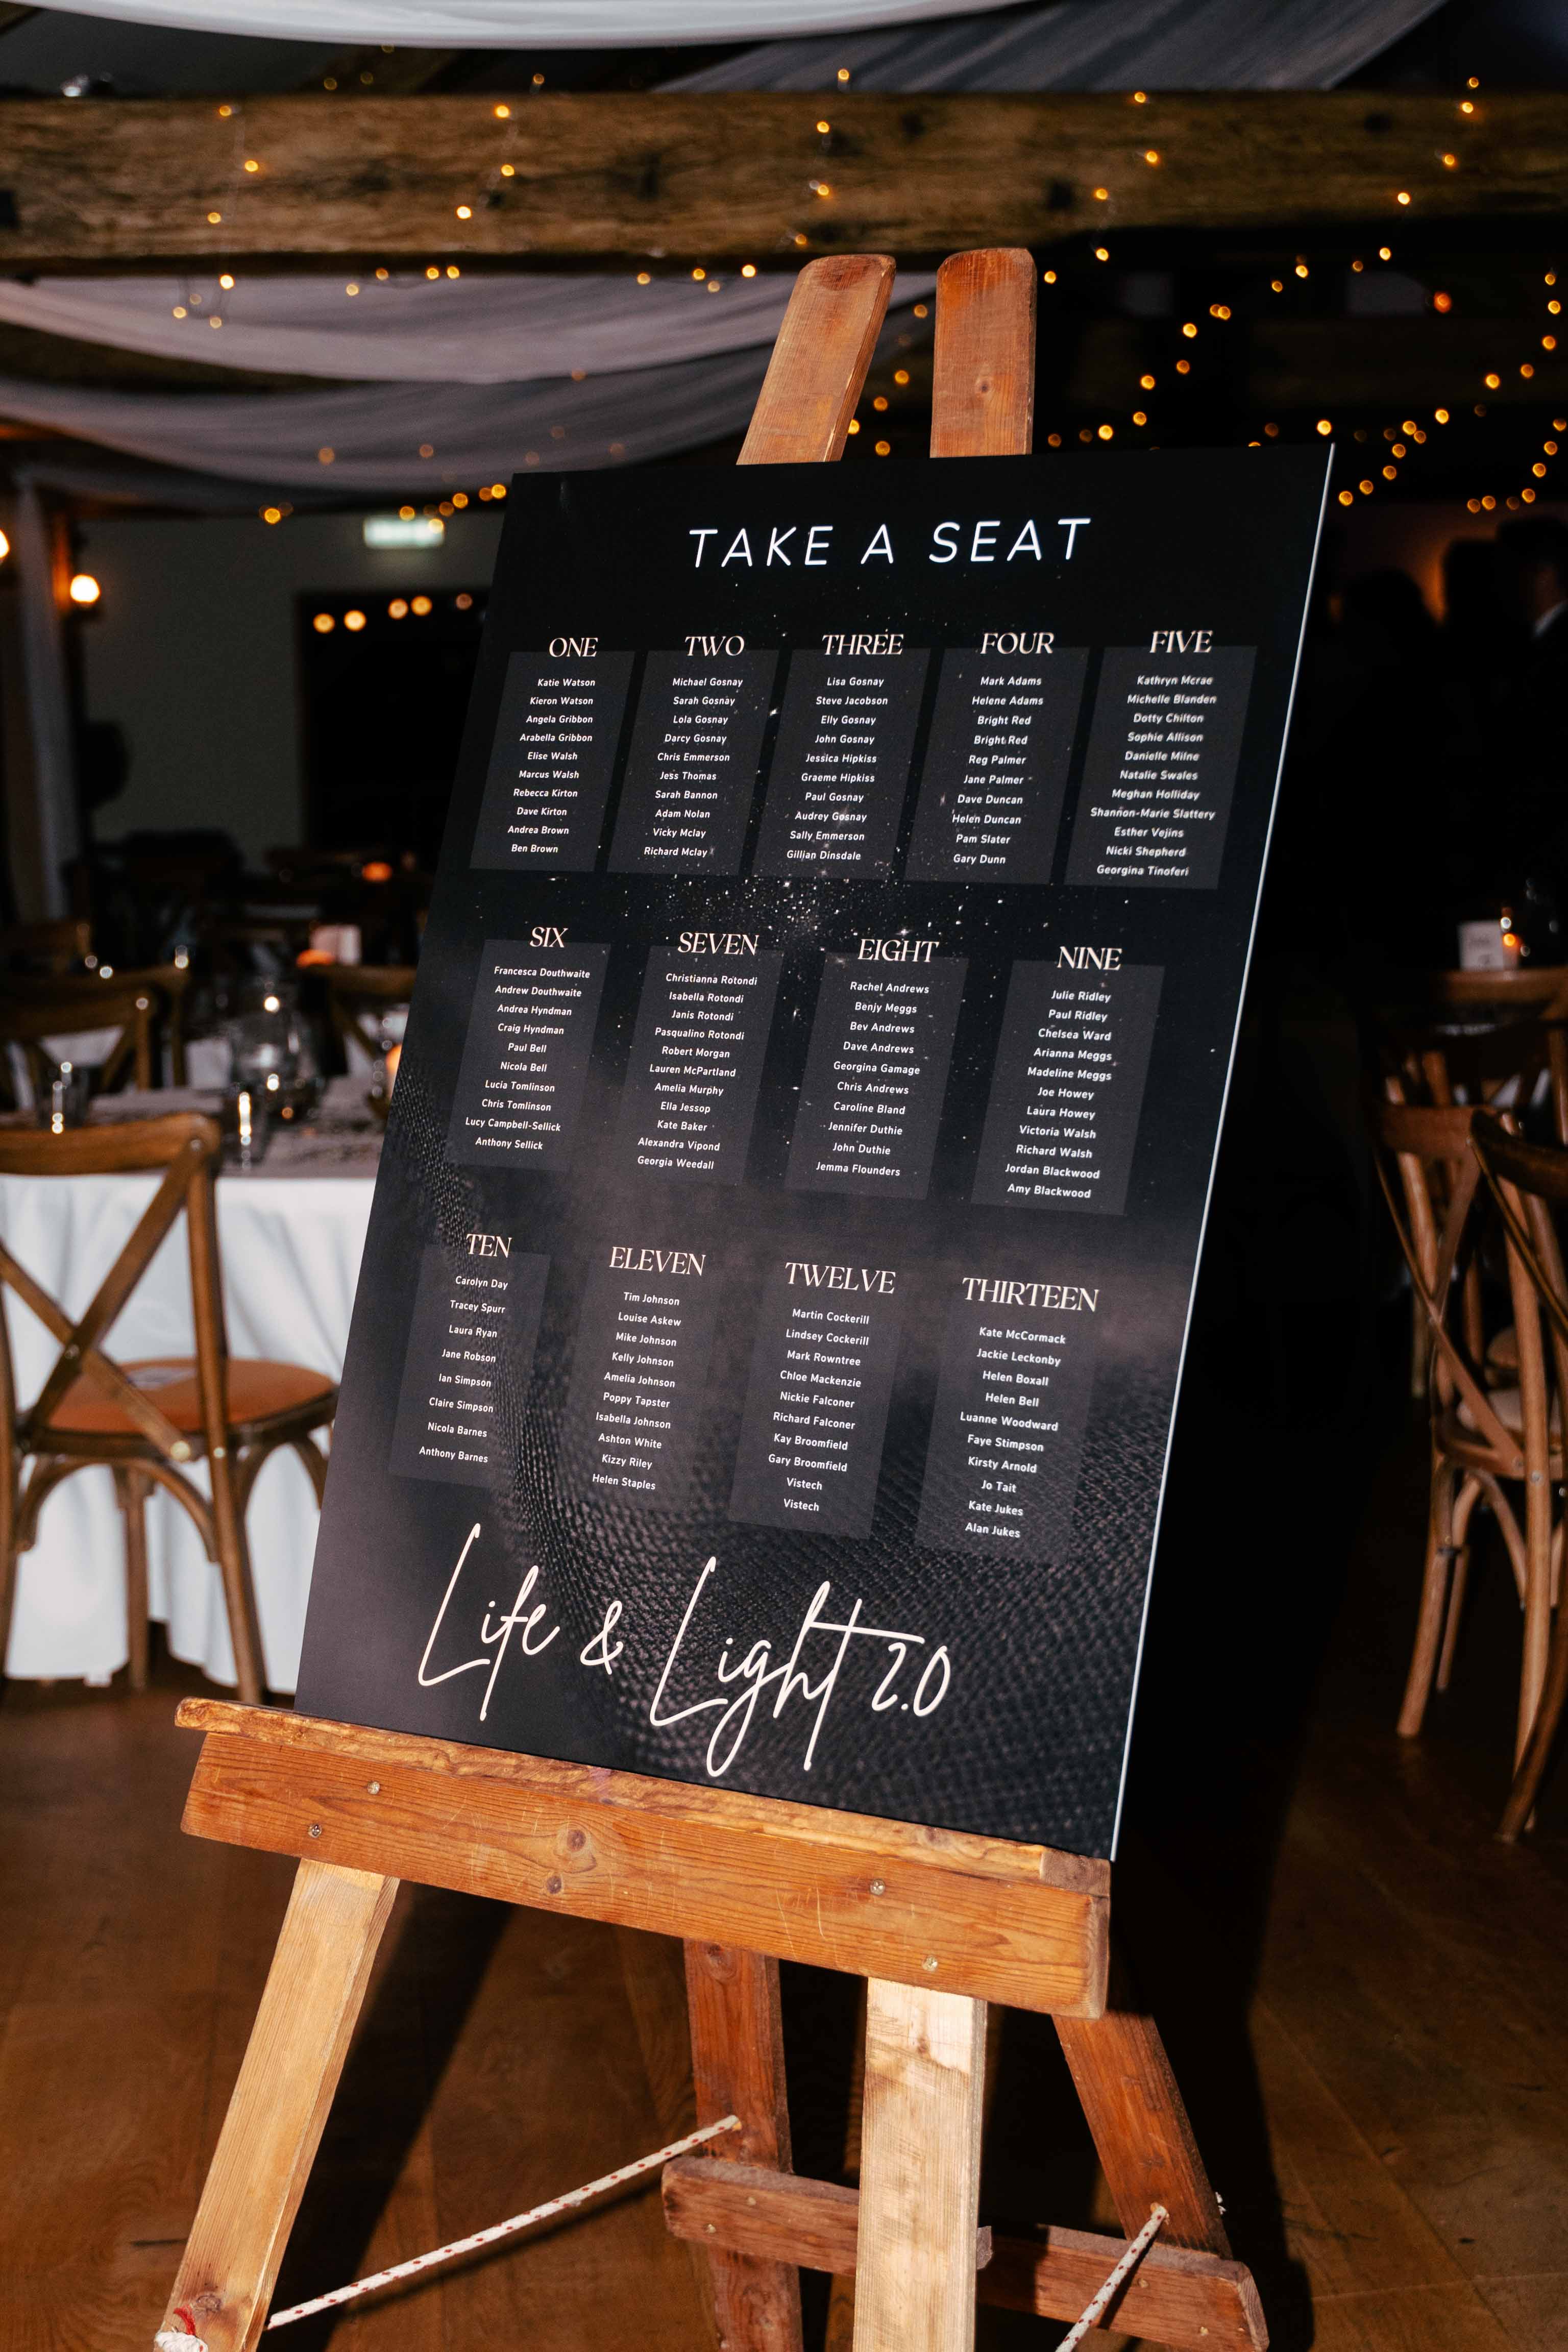 TAKE A SEAT
ONE
Katie Watson
Kieron Watson
Angela Gribbon
Arabella Gribbon
Elise Walsh
Marcus Walsh
Rebecca Kirton
Dave Kirton
Andrea Brown
Ben Brown
TWO
Michael Gosnay
Sarah Gosnay
Lola Gosnay
Darcy Gosnay
Chris Emmerson
Jess Thomas
Sarah Bannon
Adam Nolan
Vicky Mclay
Richard Mclay
THREE
Lisa Gosnay
Steve Jacobson
Elly Gosnay
John Gosnay
Jessica Hipkiss
Graeme Hipkiss
Paul Gosnay
Audrey Gosnay
Sally Emmerson
Gillian Dinsdale
FOUR
Mark Adams
Helene Adams
Bright Red
Bright Red
Reg Palmer
Jane Palmer
Dave Duncan
Helen Duncan
Pam Slater
Gary Dunn
FIVE
Kathryn Mcrae
Michelle Blanden
Dotty Chilton
Sophie Allison
Danielle Milne
Natalie Swales
Meghan Holliday
Shannon-Marie Slattery
Esther Vejins
Nicki Shepherd
Georgina Tinoferi
SIX
Francesca Douthwaite
Andrew Douthwaite
Andrea Hyndman
Craig Hyndman
Paul Bell
Nicola Bell
Lucia Tomlinson
Chris Tomlinson
Lucy Campbell-Sellick
Anthony Sellick
SEVEN
Christianna Rotondi
Isabella Rotondi
Janis Rotondi
Pasqualino Rotondi
Robert Morgan
Lauren McPartland
Amelia Murphy
Ella Jessop
Kate Baker
Alexandra Vipond
Georgia Weedall
EIGHT
Rachel Andrews
Benjy Meggs
Bev Andrews
Dave Andrews
Georgina Gamage
Chris Andrews
Caroline Bland
Jennifer Duthie
John Duthie
Jemma Flounders
NINE
Julie Ridley
Paul Ridley
Chelsea Ward
Arianna Meggs
Madeline Meggs
Joe Howey
Laura Howey
Victoria Walsh
Richard Walsh
Jordan Blackwood
Amy Blackwood
TEN
Carolyn Day
Tracey Spurr
Laura Ryan
Jane Robson
Ian Simpson
Claire Simpson
Nicola Barnes
Anthony Barnes
ELEVEN
Tim Johnson
Louise Askew
Mike Johnson
Kelly Johnson
Amelia Johnson
Poppy Tapster
Isabella Johnson
Ashton White
Kizzy Riley
Helen Staples
TWELVE
Martin Cockerill
Lindsey Cockerill
Mark Rowntree
Chloe Mackenzie
Nickie Falconer
Richard Falconer
Kay Broomfield
Gary Broomfield
Vistech
Vistech
THIRTEEN
Kate McCormack
Jackie Leckonby
Helen Boxall
Helen Bell
Luanne Woodward
Faye Stimpson
Kirsty Arnold
Jo Tait
Kate Jukes
Alan Jukes
Life & Light 2.0